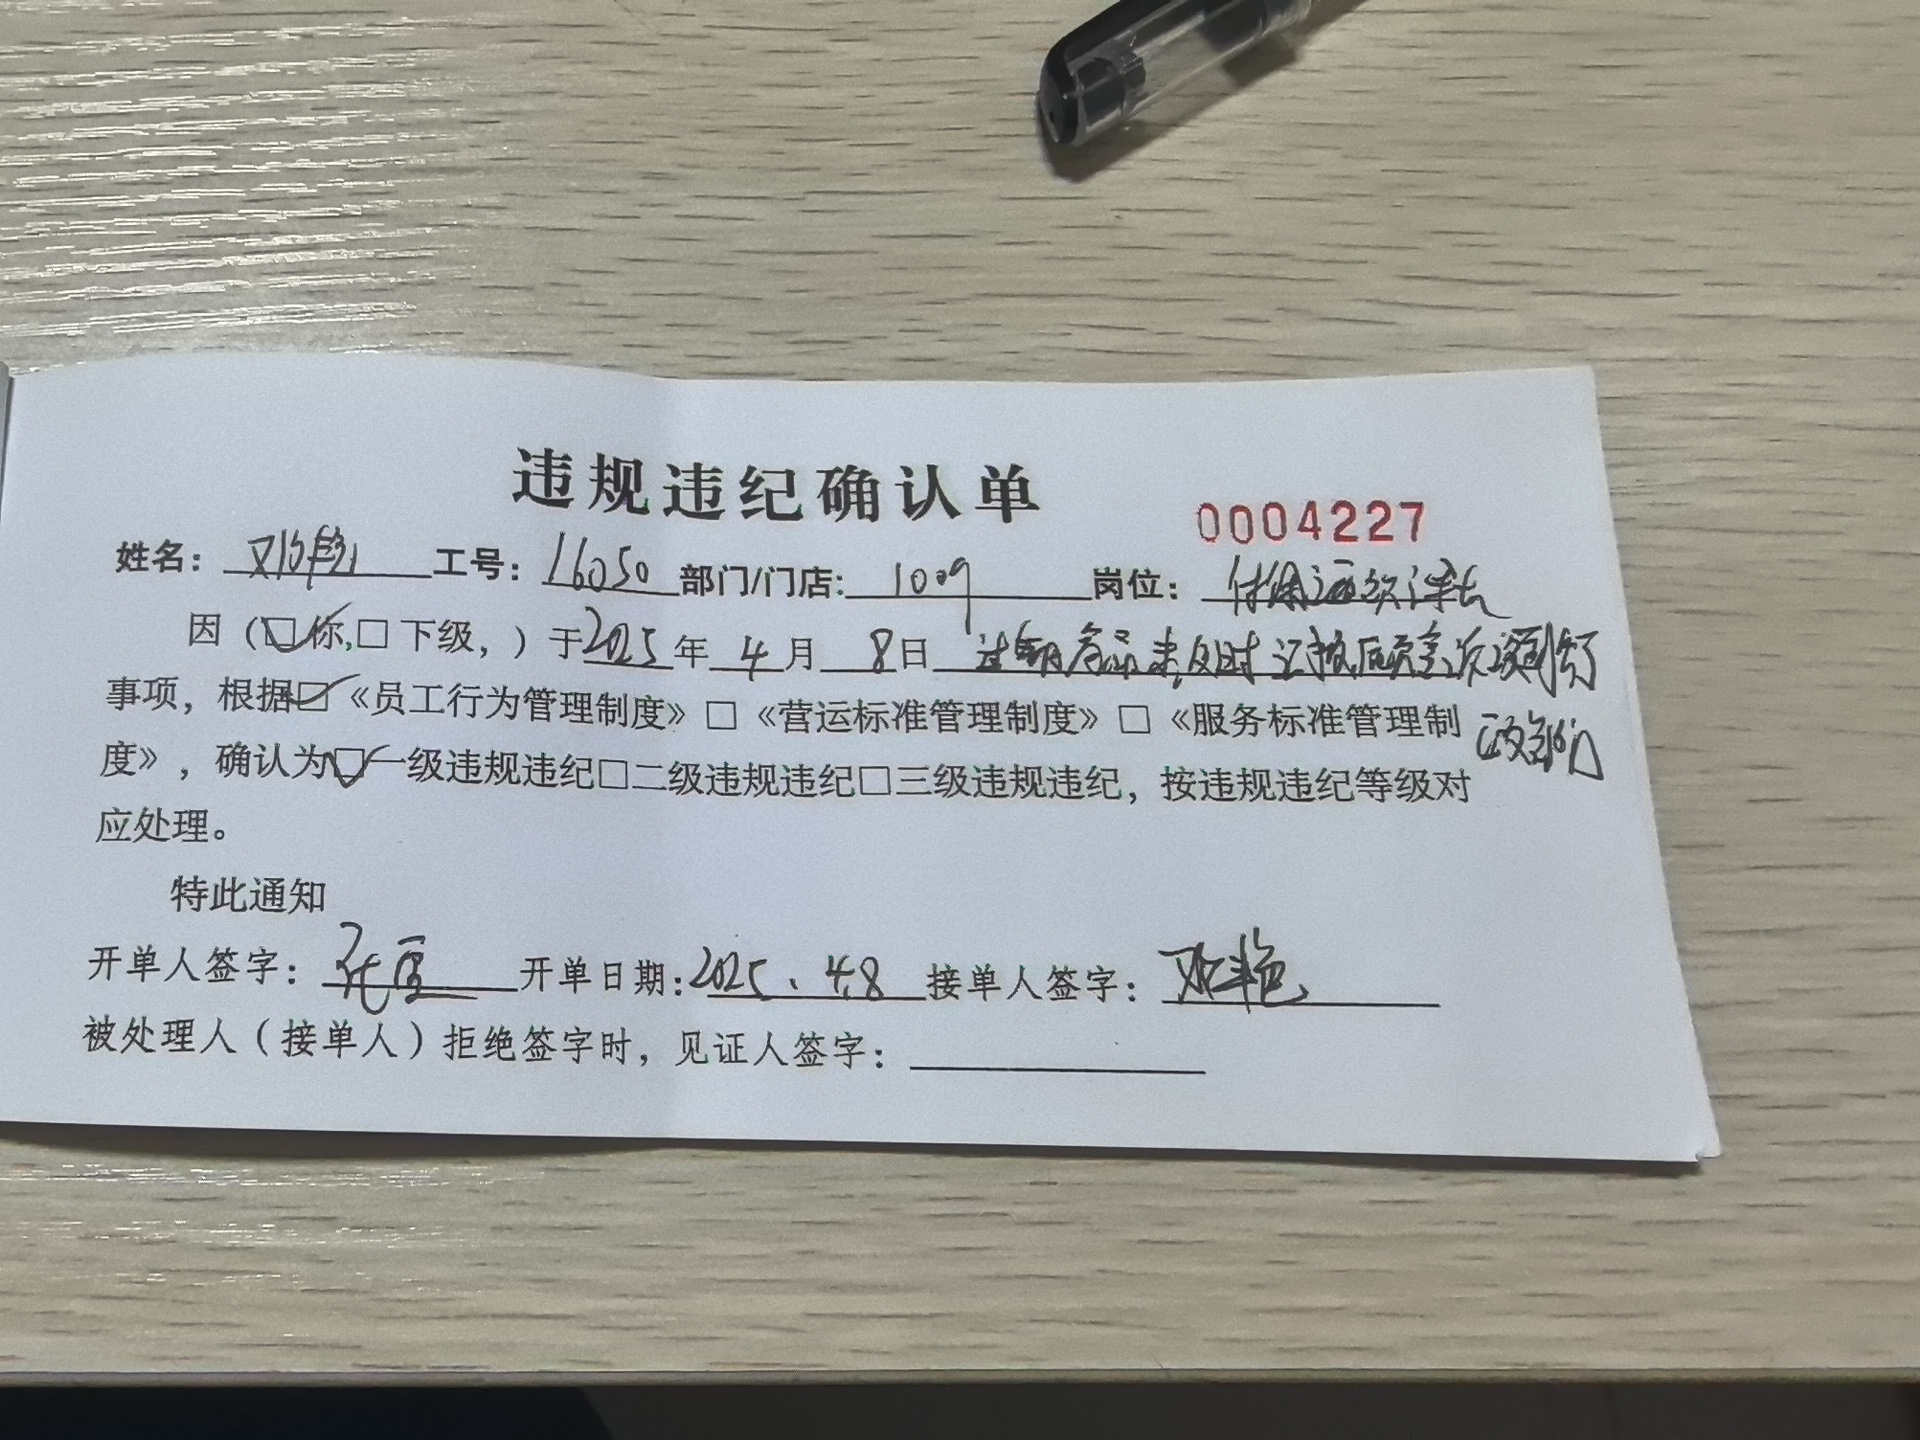 违规违纪确认单
0004227
姓名： 工号：16050 部门/门店：1009 岗位：
因（☑你,□下级，）于2025年4月8日 过期商品未及时
事项，根据☑《员工行为管理制度》□《营运标准管理制度》□《服务标准管理制
度》，确认为☑一级违规违纪□二级违规违纪□三级违规违纪，按违规违纪等级对
应处理。
特此通知
开单人签字： 开单日期：2025.4.8 接单人签字：
被处理人（接单人）拒绝签字时，见证人签字：